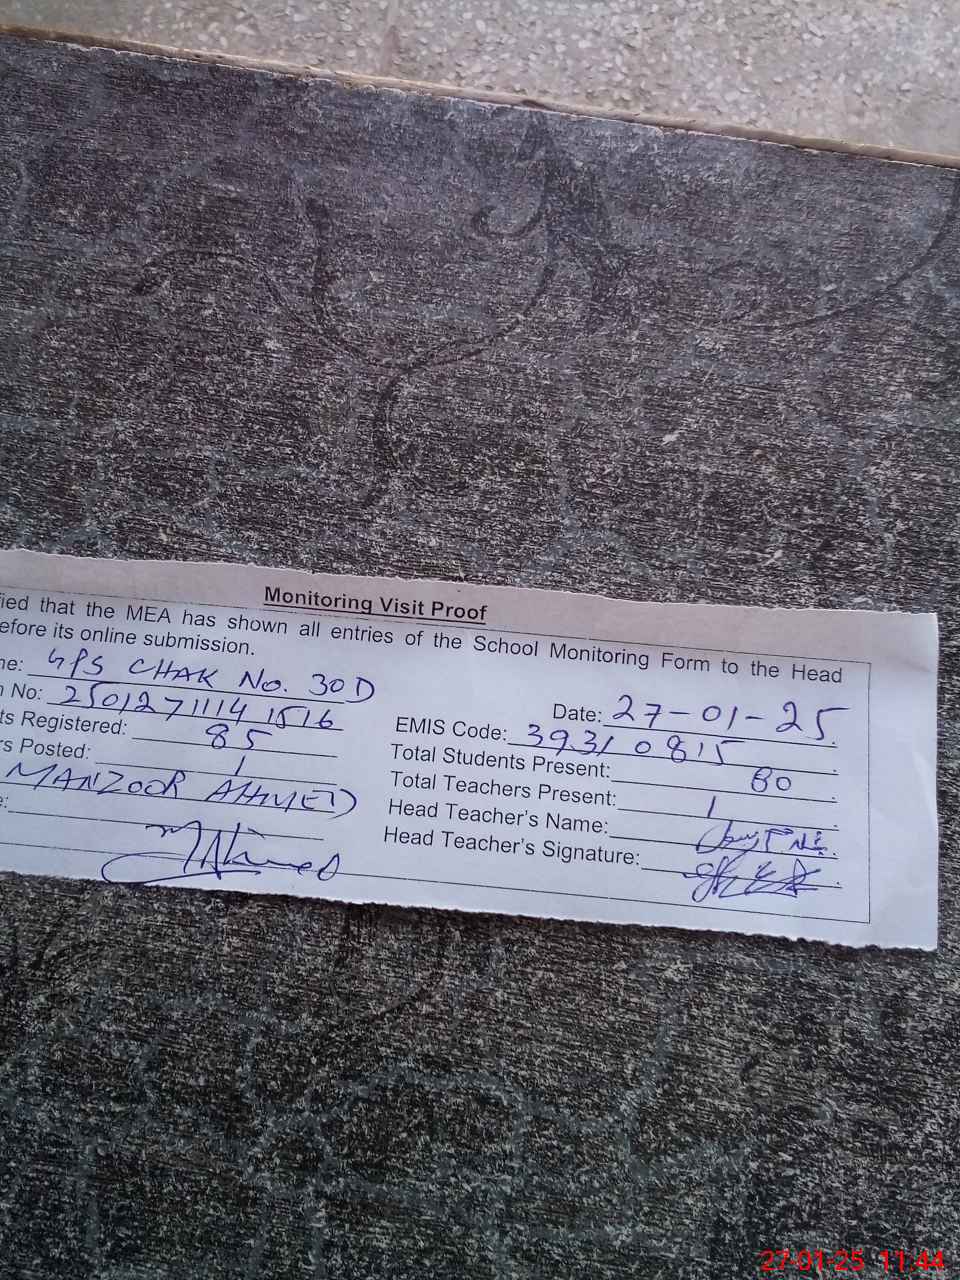 Monitoring Visit Proof
fied that the MEA has shown all entries of the School Monitoring Form to the Head
efore its online submission.
me: GPS CHAK No. 30D
Date: 27-01-25.
n No: 25012711141516
EMIS Code: 39310815.
ts Registered: 85
Total Students Present: 80.
rs Posted: 1
Total Teachers Present: 1.
MANZOOR AHMED
Head Teacher's Name:
e:
Head Teacher's Signature:
27-01-25 11:44